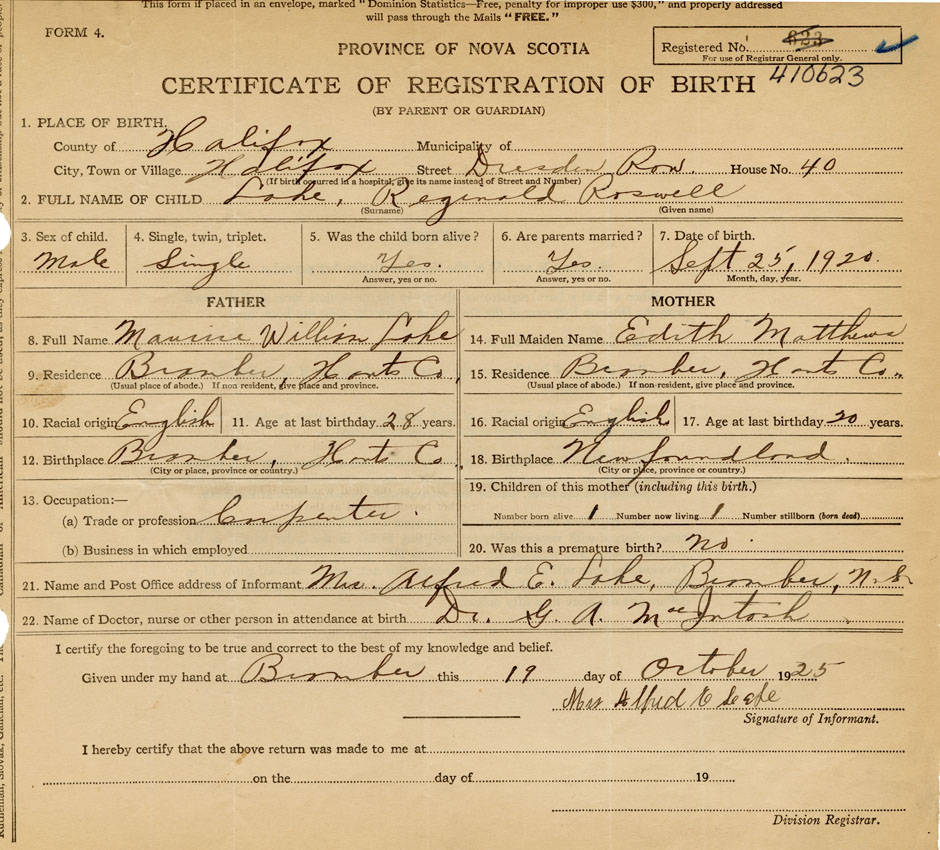 This form if placed in an envelope, marked "Dominion Statistics—Free, penalty for improper use $300," and properly addressed
will pass through the Mails "FREE."
FORM 4.
PROVINCE OF NOVA SCOTIA
Registered No. 823
For use of Registrar General only.
410623
CERTIFICATE OF REGISTRATION OF BIRTH
(BY PARENT OR GUARDIAN)
1. PLACE OF BIRTH.
County of Halifax Municipality of
City, Town or Village Halifax Street Dresden Row. House No. 40
(If birth occurred in a hospital, give its name instead of Street and Number)
2. FULL NAME OF CHILD Lake, Reginald Roswell
(Surname) (Given name)
3. Sex of child. 4. Single, twin, triplet. 5. Was the child born alive? 6. Are parents married? 7. Date of birth.
Male Single Yes. Yes. Sept 25, 1920.
Answer, yes or no. Answer, yes or no. Month, day, year.
FATHER MOTHER
8. Full Name Maurice William Lake 14. Full Maiden Name Edith Matthews
9. Residence Bramber, Hants Co. 15. Residence Bramber, Hants Co.
(Usual place of abode.) If non resident, give place and province. (Usual place of abode.) If non-resident, give place and province.
10. Racial origin English 11. Age at last birthday 28 years. 16. Racial origin English 17. Age at last birthday 20 years.
12. Birthplace Bramber, Hants Co. 18. Birthplace Newfoundland.
(City or place, province or country.) (City or place, province or country.)
13. Occupation:— 19. Children of this mother (including this birth.)
(a) Trade or profession Carpenter. Number born alive 1 Number now living 1 Number stillborn (born dead)
(b) Business in which employed 20. Was this a premature birth? no.
21. Name and Post Office address of Informant Mrs. Alfred E. Lake, Bramber, N.S.
22. Name of Doctor, nurse or other person in attendance at birth Dr. G. A. MacIntosh
I certify the foregoing to be true and correct to the best of my knowledge and belief.
Given under my hand at Bramber this 19 day of October 1925
Mrs Alfred E Leake
Signature of Informant.
I hereby certify that the above return was made to me at
on the day of 19
Division Registrar.